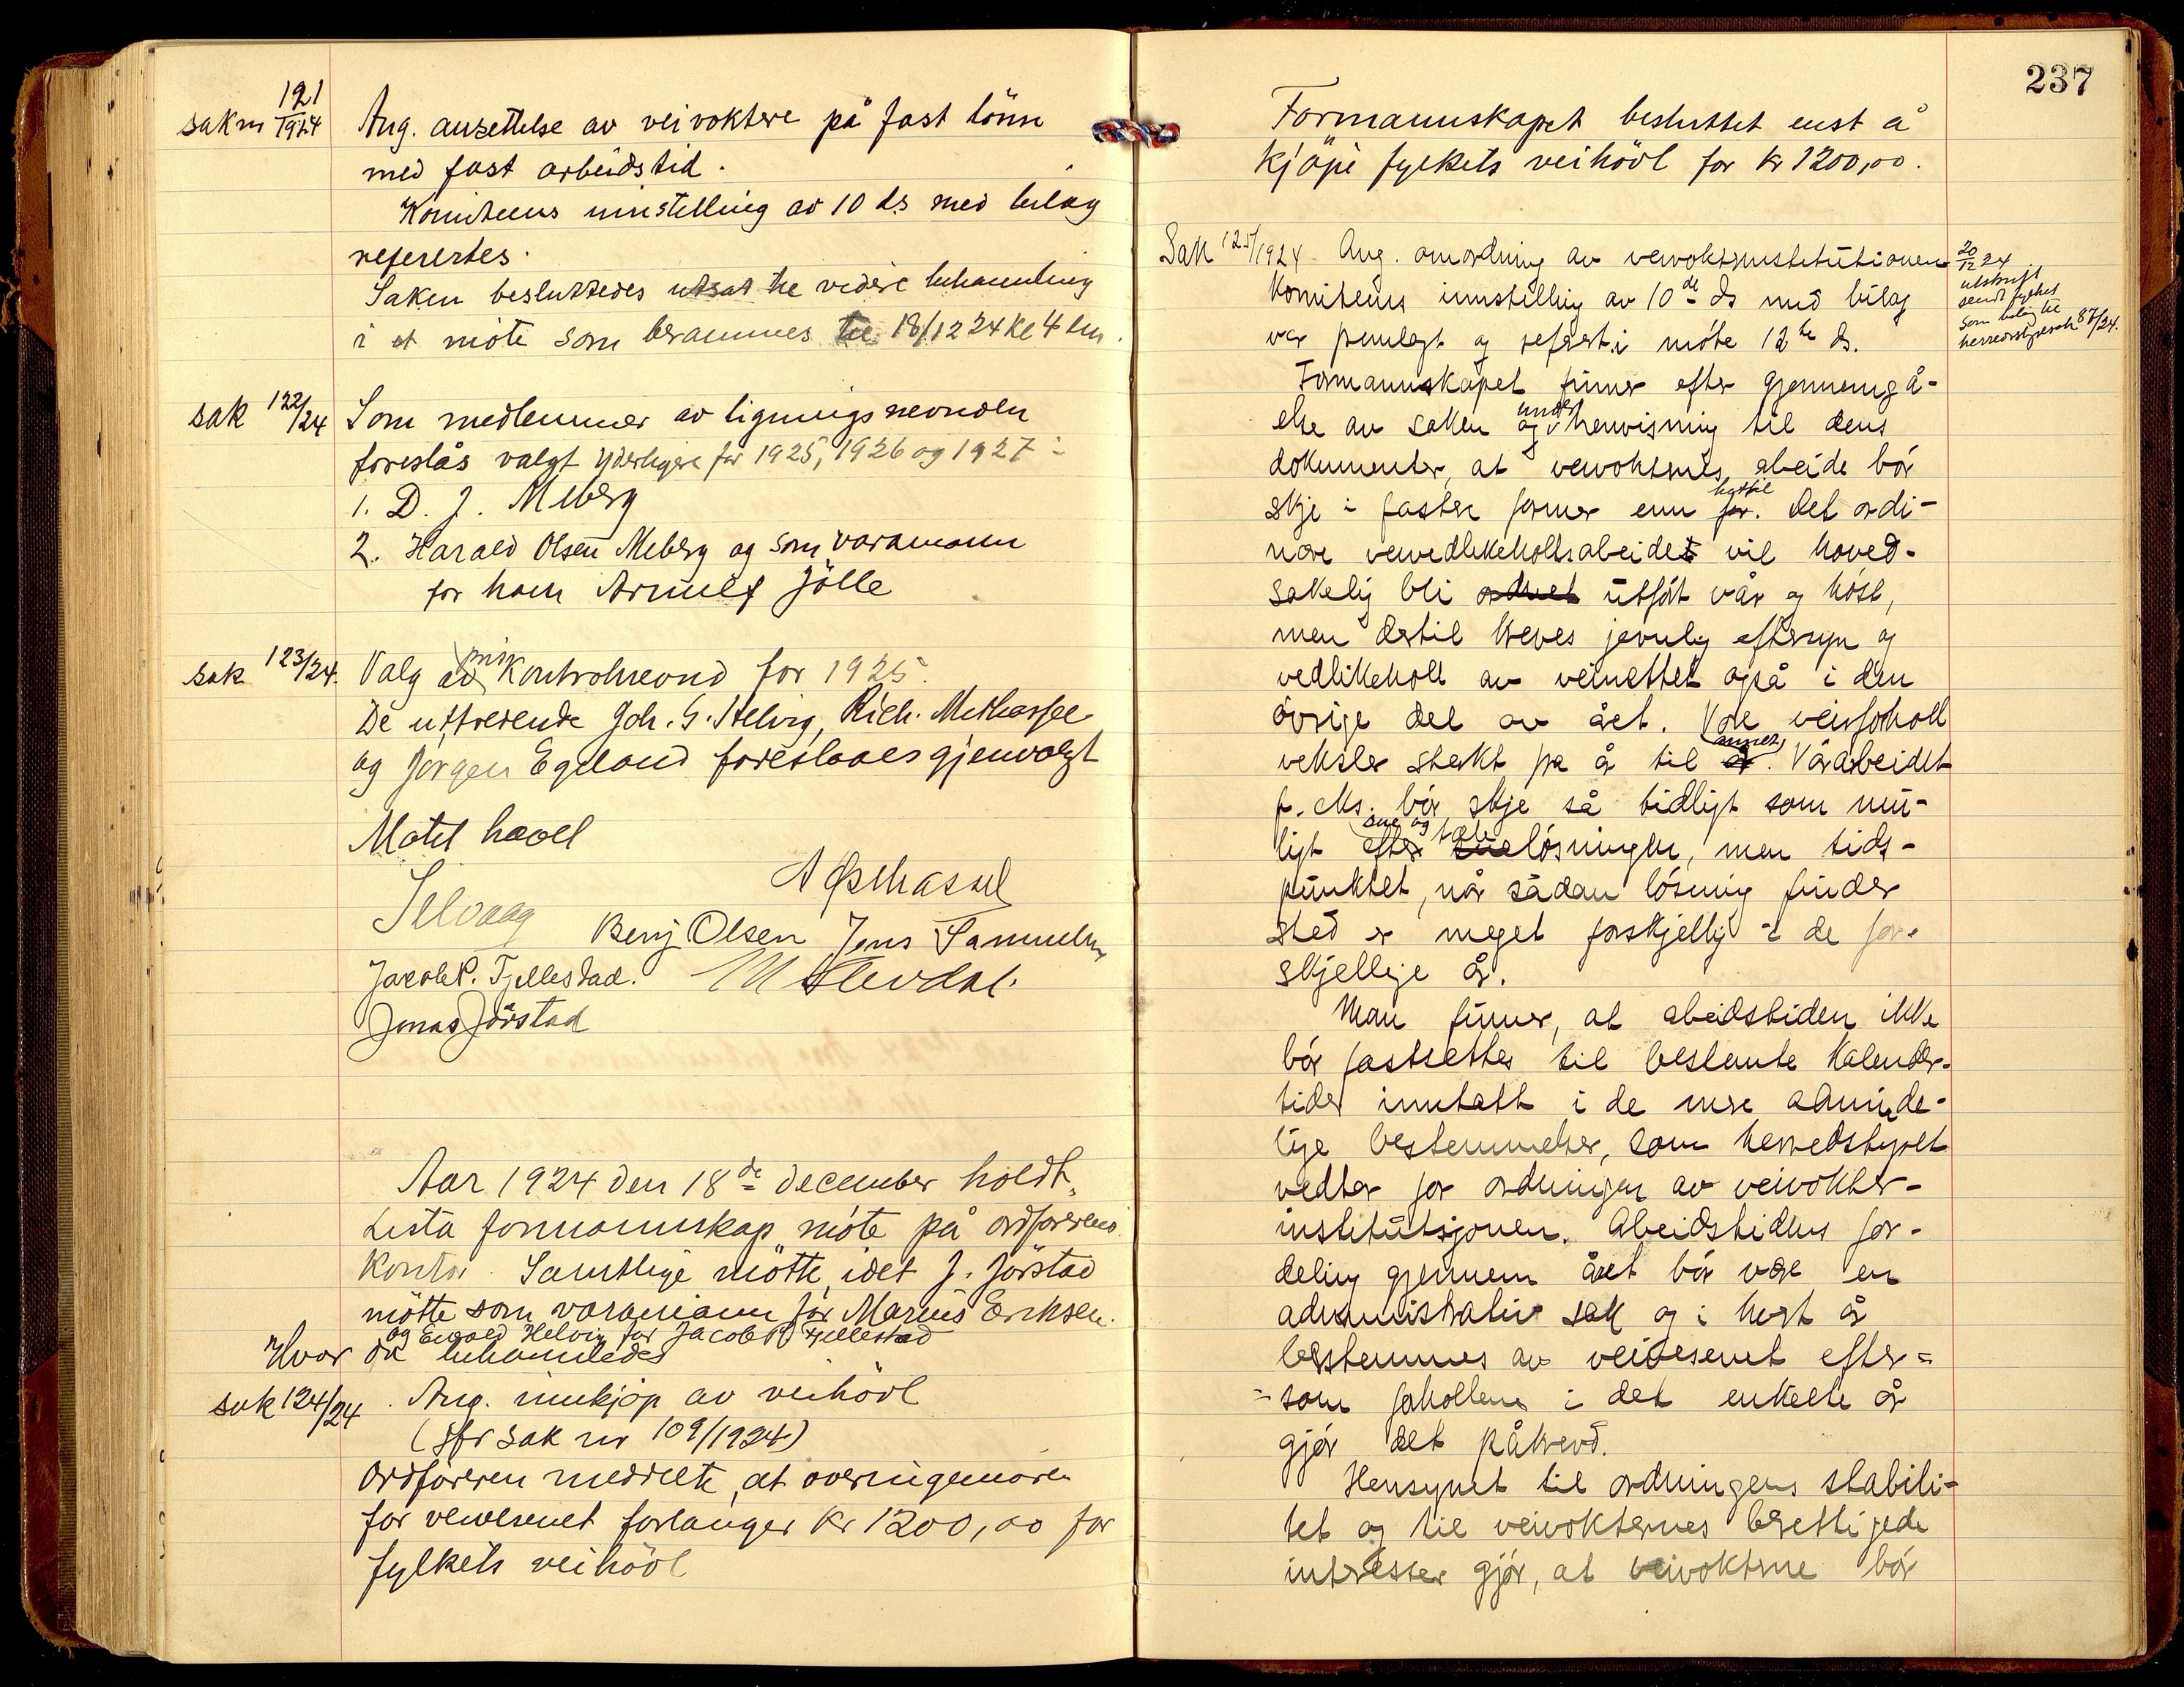 sak nr 121/1924 Ang. ansettelse av veivoktere på fast lönn
med fast arbeidstid.
Komiteens innstilling av 10 ds med bilag
refertes.
Saken besluttedes utsat til videre behandling
i et møte som berammes til 18/12 24 kl 4 em.
sak 122/24 Som medlemmer av ligningsnevnden
foreslås valgt yderligere for 1925, 1926 og 1927:
1. D. J. Meberg
2. Harald Olsen Meberg og som varamann
for ham Arnulf Jölle
sak 123/24. Valg av priskontrolnevnd for 1925.
De uttredende Joh. G. Stelvig, Rich. Mathassel
og Jørgen Egeland foreslaaes gjenvalgt
Møtet hævet
A Østhassel
Selvaag
Benj Olsen Jens Samuelsen
Jacob P. Tjellestad.
Jonas Jörstad
Aar 1924 den 18de december holdt
Lista formannskap møte på ordførerens
kontor. Samtlige møtte, idet J. Jörstad
møtte som varamann for Marius Eriksen.
og Edvald Helvig for Jacob P. Tjellestad
Hvor da behandledes
sak 124/24 Ang. innkjøp av veihövl
(Jfr sak nr 109/1924)
Ordföreren meddelte, at overingeniøren
for veivesenet forlanger kr 1200,00 for
fylkets veihövl
237
Formannskapet besluttet enst å
kjöpe fylkets veihövl for kr 1200,00.
Sak 125/1924 Ang. omordning av veivokterinstitutionen
Komiteens innstilling av 10de ds med bilag
var fremlagt og refert i møte 12te ds.
20/12 24
utskrift
sendt fylket
som bilag til
herredsstyresak 87/24.
Formannskapet finner efter gjennemgå-
else av saken og under henvisning til dens
dokumenter, at veivokternes arbeide bör
skje i fastere former enn hittil for. Det ordi-
nære veivedlikeholdsarbeidet vil hoved-
sakelig bli ordnet utført vår og høst,
men dertil kreves jevnlig eftersyn og
vedlikehold av veinettet også i den
övrige del av året. Våre veirforhold
veksler sterkt fra år til annet år. Vårarbeidet
f. eks. bör skje så tidligt som mu-
ligt efter sne og tele løsningen, men tids-
punktet, når sådan løsning finder
sted er meget forskjellig i de for-
skjellige år.
Man finner, at arbeidstiden ikke
bör fastsettes til bestemte kalender-
tider inntatt i de mere alminde-
lige bestemmelser, som herredsstyret
vedtar for ordningen av veivokter-
institutsjonen. Arbeidstidens for-
deling gjennem året bör være en
administrativ sak og i hvert år
bestemmes av veivesenet efter-
som forholdene i det enkelte år
gjör det påkrevd.
Hensynet til ordningens stabili-
tet og til veivokternes berettigede
interesser gjör, at veivokterne bör